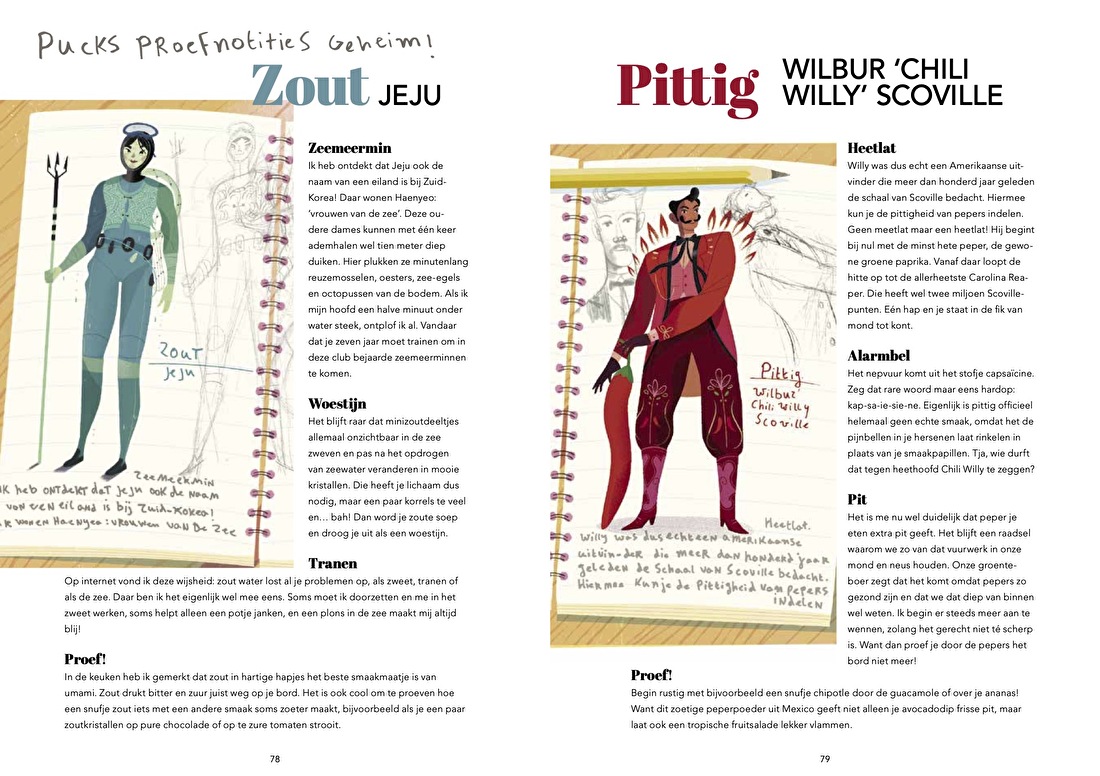 PUCKS PROEFNOTITIES GEHEIM!
Zout JEJU
Zeemeermin
Ik heb ontdekt dat Jeju ook de
naam van een eiland is bij Zuid-
Korea! Daar wonen Haenyeo:
‘vrouwen van de zee’. Deze ou-
dere dames kunnen met één keer
ademhalen wel tien meter diep
duiken. Hier plukken ze minutenlang
reuzemosselen, oesters, zee-egels
en octopussen van de bodem. Als ik
mijn hoofd een halve minuut onder
water steek, ontplof ik al. Vandaar
dat je zeven jaar moet trainen om in
deze club bejaarde zeemeerminnen
te komen.
Woestijn
Het blijft raar dat minizoutdeeltjes
allemaal onzichtbaar in de zee
zweven en pas na het opdrogen
van zeewater veranderen in mooie
kristallen. Die heeft je lichaam dus
nodig, maar een paar korrels te veel
en… bah! Dan word je zoute soep
en droog je uit als een woestijn.
Tranen
Op internet vond ik deze wijsheid: zout water lost al je problemen op, als zweet, tranen of
als de zee. Daar ben ik het eigenlijk wel mee eens. Soms moet ik doorzetten en me in het
zweet werken, soms helpt alleen een potje janken, en een plons in de zee maakt mij altijd
blij!
Proef!
In de keuken heb ik gemerkt dat zout in hartige hapjes het beste smaakmaatje is van
umami. Zout drukt bitter en zuur juist weg op je bord. Het is ook cool om te proeven hoe
een snufje zout iets met een andere smaak soms zoeter maakt, bijvoorbeeld als je een paar
zoutkristallen op pure chocolade of op te zure tomaten strooit.
ZOUT
jeju
Zeemeermin
IK heb ONTDEKT DAT jeju ook de NAAM
VAN EEN eiland is bij Zuid-Korea!
WONEN Haenyeo: vrouwen VAN De Zee
78
Pittig WILBUR ‘CHILI
WILLY’ SCOVILLE
Heetlat
Willy was dus echt een Amerikaanse uit-
vinder die meer dan honderd jaar geleden
de schaal van Scoville bedacht. Hiermee
kun je de pittigheid van pepers indelen.
Geen meetlat maar een heetlat! Hij begint
bij nul met de minst hete peper, de gewo-
ne groene paprika. Vanaf daar loopt de
hitte op tot de allerheetste Carolina Rea-
per. Die heeft wel twee miljoen Scoville-
punten. Eén hap en je staat in de fik van
mond tot kont.
Alarmbel
Het nepvuur komt uit het stofje capsaïcine.
Zeg dat rare woord maar eens hardop:
kap-sa-ie-sie-ne. Eigenlijk is pittig officieel
helemaal geen echte smaak, omdat het de
pijnbellen in je hersenen laat rinkelen in
plaats van je smaakpapillen. Tja, wie durft
dat tegen heethoofd Chili Willy te zeggen?
Pit
Het is me nu wel duidelijk dat peper je
eten extra pit geeft. Het blijft een raadsel
waarom we zo van dat vuurwerk in onze
mond en neus houden. Onze groente-
boer zegt dat het komt omdat pepers zo
gezond zijn en dat we dat diep van binnen
wel weten. Ik begin er steeds meer aan te
wennen, zolang het gerecht niet té scherp
is. Want dan proef je door de pepers het
bord niet meer!
Proef!
Begin rustig met bijvoorbeeld een snufje chipotle door de guacamole of over je ananas!
Want dit zoetige peperpoeder uit Mexico geeft niet alleen je avocadodip frisse pit, maar
laat ook een tropische fruitsalade lekker vlammen.
Pittig
Wilbur
Chili Willy
Scoville
Heetlat.
Willy was dus echt een Amerikaanse
uitvin-der die meer dan honderd jaar
geleden de Schaal van Scoville bedacht.
Hiermee kun je de Pittigheid van PEPERS
INDELEN
79